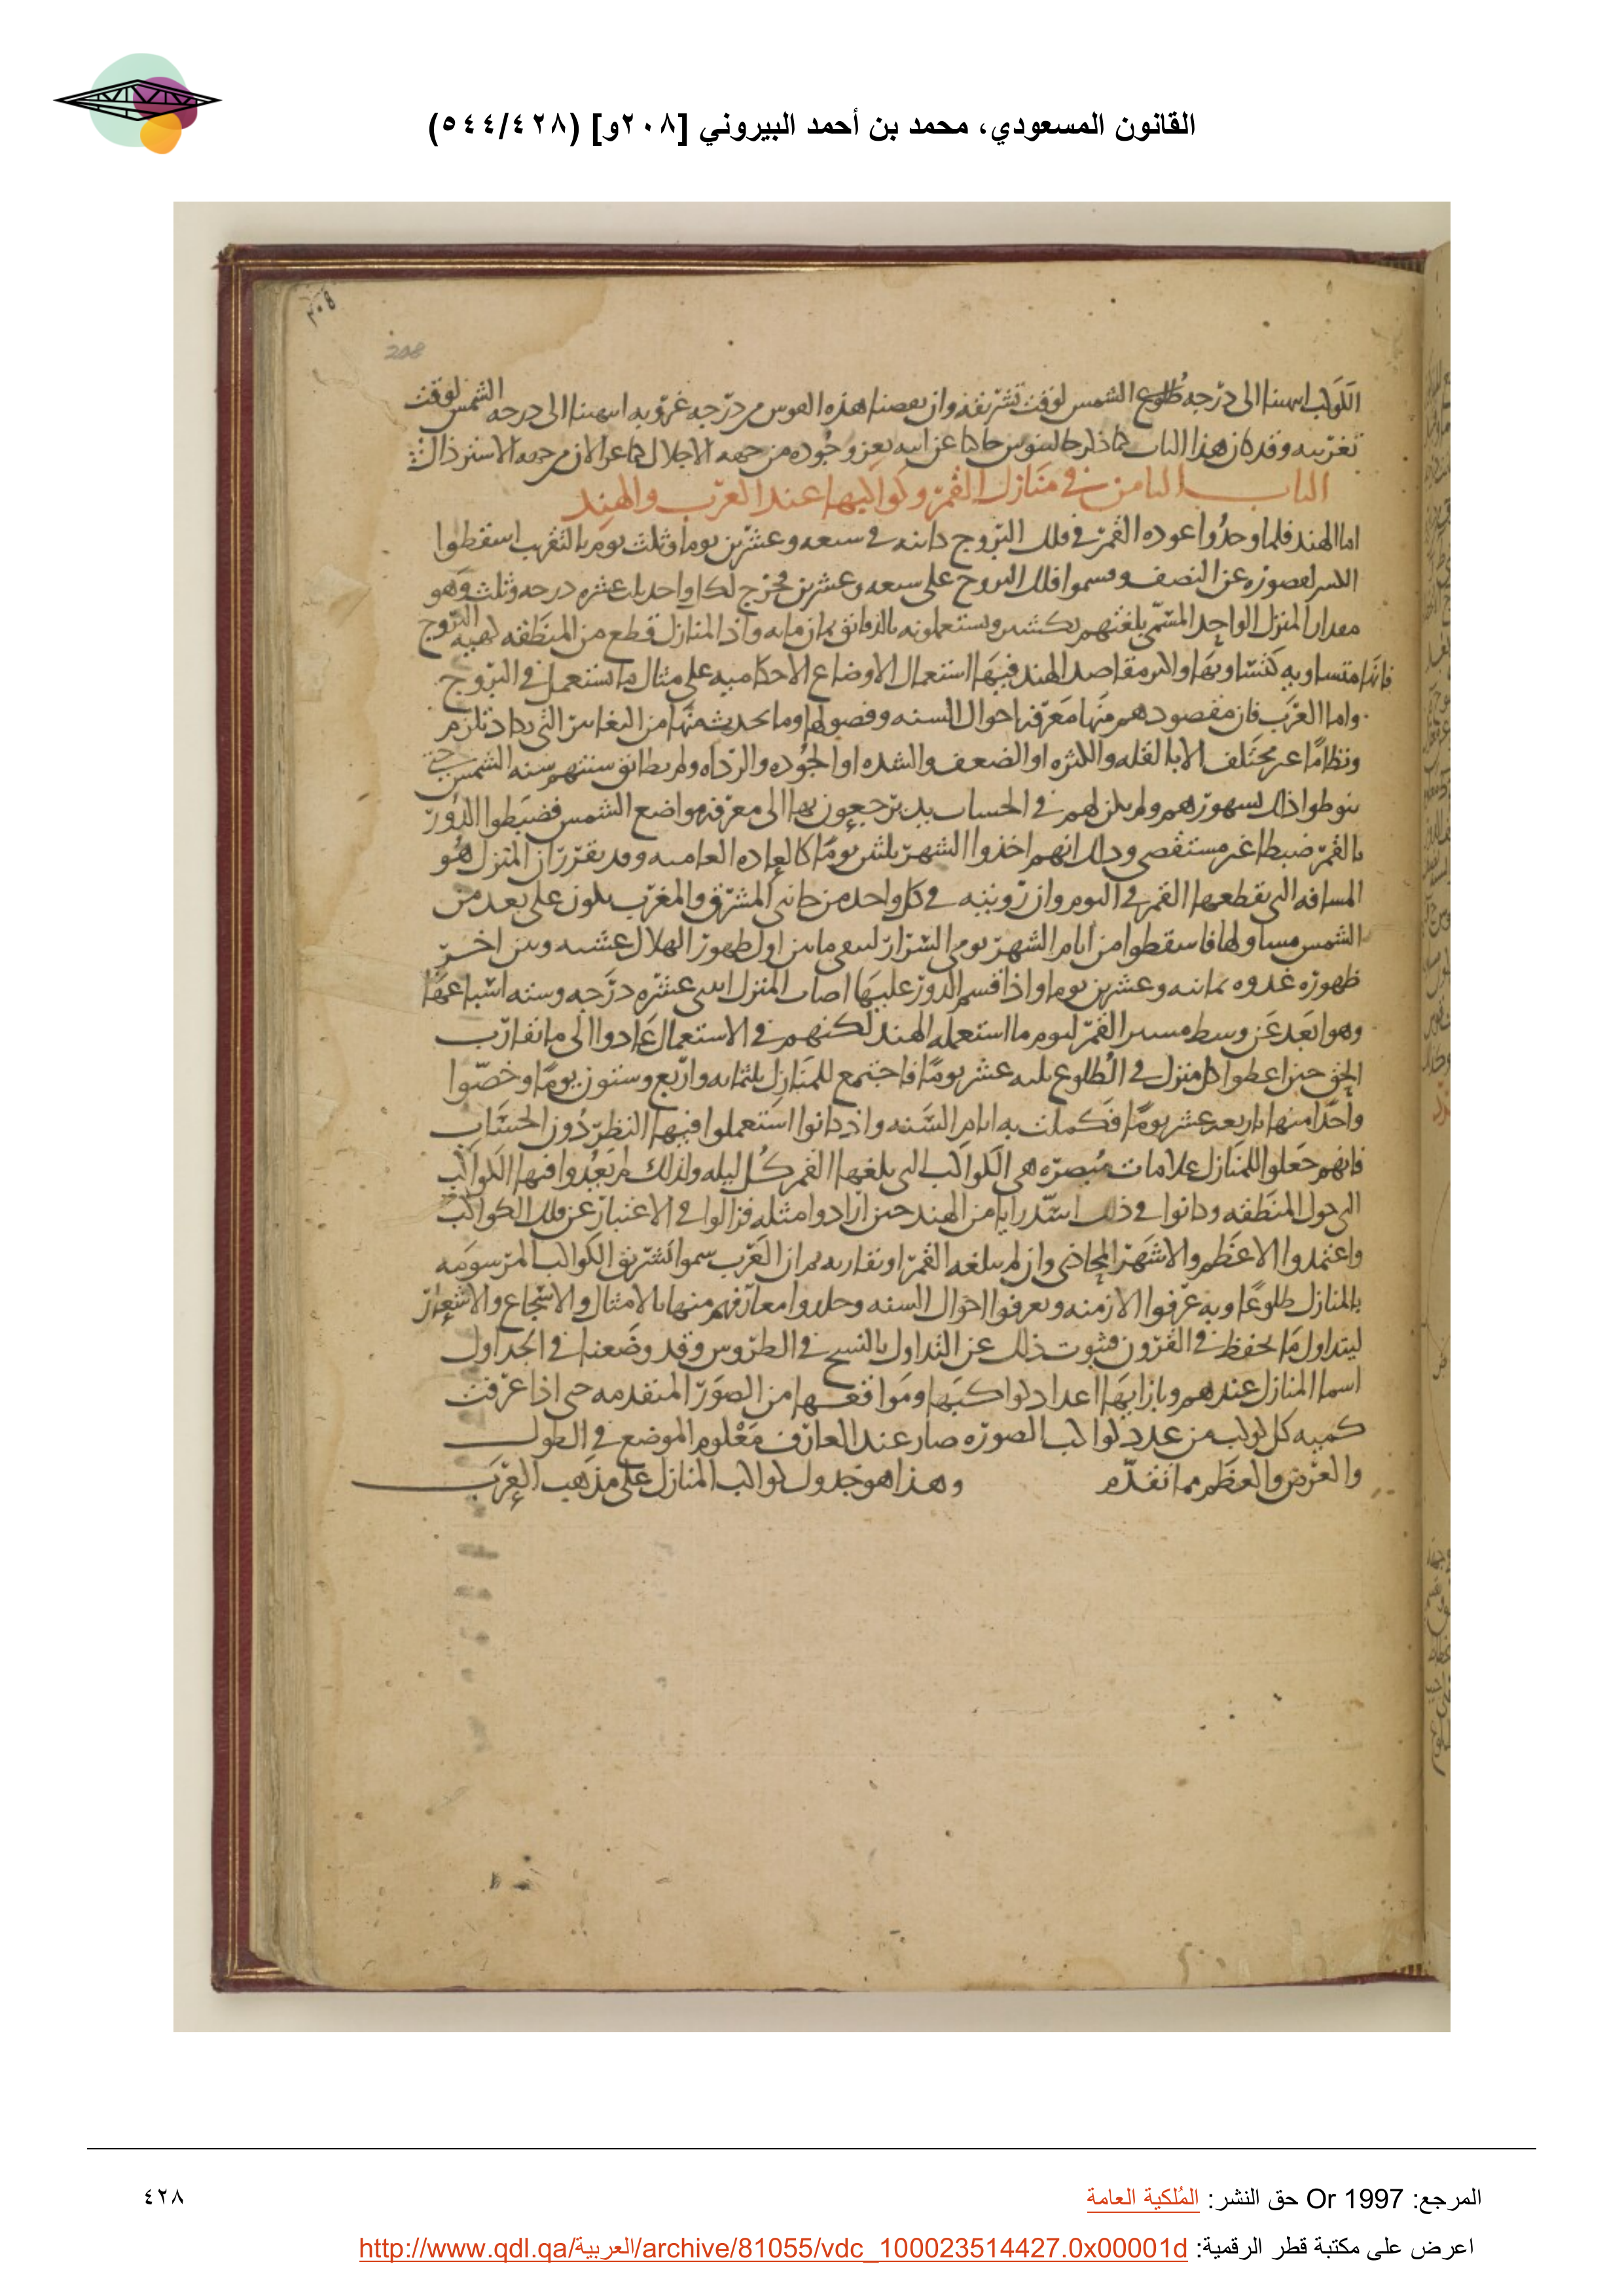 القانون المسعودي، محمد بن أحمد البيروني [٢٠٨و] (٥٤٤/٤٢٨)
٢٠٨
208
الكواكب انتهينا الى درجه طلوع الشمس لوقت تشريقه وان نقصنا هذه القوس من درجه غروبه انتهينا الى درجه الشمس لوقت
تغريبه وقد كان هذا الباب كما ذكر جالينوس حاكيا عن ابيه يعز وجوده من جهه الاجلال كما عز الان من جهه الاسترذال
الباب الثامن في منازل القمر وكواكبها عند العرب والهند
اما الهند فلما وجدوا عوده القمر في فلك البروج كائنه في سبعه وعشرين يوما وثلث يوم بالتقريب اسقطوا
الكسر لقصوره عن النصف وقسموا فلك البروج على سبعه وعشرين فخرج لكل واحد ثلث عشره درجه وثلث وهو
مقدار المنزل الواحد المسمى بلغتهم نكشتر ويستعملونه بالدقائق ثمان مائه واذ المنازل قطع من المنطقه كهيه البروج
فانها متساويه كتساويها واكثر مقاصد الهند فيها استعمال الاوضاع الاحكاميه على مثال ما يستعمل في البروج
واما العرب فان مقصودهم منها معرفه احوال السنه وفصولها وما يحدث منها من التغايير التي تكاد تلزم
ونظاما غير مختلف الا بالقله والكثره او الضعف والشده او الجوده والرداه ولم يطابق سنتهم سنه الشمس حتى
ينوطوا ذلك بشهورهم ولم يكن لهم في الحساب يد يرجعون بها الى معرفه مواضع الشمس فضبطوا الدور
بالقمر ضبطا غير مستقصى وذلك انهم اخذوا الشهر ثلثين يوما كالعاده العاميه وقد تقرر ان المنزل هو
المسافه التي يقطعها القمر في اليوم وان رويته في كل واحد من جانبي المشرق والمغرب يكون على بعد من
الشمس مساو لها فاسقطوا من ايام الشهر يومي السرار ليبقى ما بين اول ظهور الهلال عشيه وبين اخر
ظهوره غدوه ثمانيه وعشرين يوما واذا قسم الدور عليها اصاب المنزل اثنى عشره درجه وسته اسباعها
وهو ابعد عن وسط مسير القمر ليوم ما استعمله الهند لكنهم في الاستعمال عادوا الى ما تقارب
الحق حين اعطوا كل منزل في الطلوع ثلثه عشر يوما فاجتمع للمنازل ثلثمايه واربع وستون يوما وخصوا
واحدا منها باربعه عشر يوما فكملت به ايام السنه واذ كانوا استعملوا فيها النظر دون الحساب
فانهم جعلوا للمنازل علامات مبصره هي الكواكب التي يبلغها القمر كل ليله ولذلك لم يعدوا فيها الكواكب
التي حول المنطقه وكانوا في ذلك اسد رايا من الهند حين ارادوا مثله فزالوا في الاعتبار عن تلك الكواكب
واعتمدوا الاعظم والاشهر المحاذي وان لم يبلغه القمر او يقاربه ثم ان العرب سموا تشريق الكواكب المرسومه
بالمنازل طلوعا وبه عرفوا الازمنه وتعرفوا احوال السنه وخلدوا معارفهم منها بالامثال والاسجاع والاشعار
ليتداول ما يحفظ في القرون فينوب ذلك عن التداول بالنسخ في الطروس وقد وضعنا في الجداول
اسما المنازل عندهم وبازايها اعداد كواكبها ومواقعها من الصور المتقدمه حتى اذا عرفت
كميه كل كوكب من عدد كواكب الصوره صار عند العارف معلوم الموضع في الطول
والعرض والعظم مما تقدم وهذا هو جدول كواكب المنازل على مذهب العرب
المرجع: Or 1997 حق النشر: المُلكية العامة
٤٢٨
اعرض على مكتبة قطر الرقمية: http://www.qdl.qa/العربية/archive/81055/vdc_100023514427.0x00001d